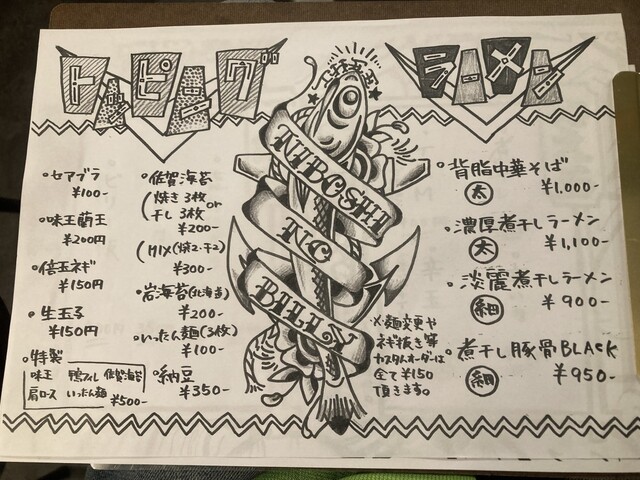 トッピング
・セアブラ
¥100-
・味玉
¥200円
・倍玉ネギ
¥150円
・生玉子
¥150円
・特製
味玉 鴨フィレ 佐賀海苔
肩ロース いったん麺
¥500-
・佐賀海苔
(焼き3枚
or
干し3枚
¥200-
(MIX(焼2・干2)
¥300-
・岩海苔(北海道)
¥200-
・いったん麺(3枚)
¥100-
・納豆
¥350-
NIBOSHI
NC
BILLY
※麺変更や
ネギ抜き等
カスタムオーダーは
全て¥150
頂きます。
ラーメン
・背脂中華そば
太 ¥1,000-
・濃厚煮干しラーメン
太 ¥1,100-
・淡麗煮干しラーメン
細 ¥900-
・煮干し豚骨BLACK
細 ¥950-